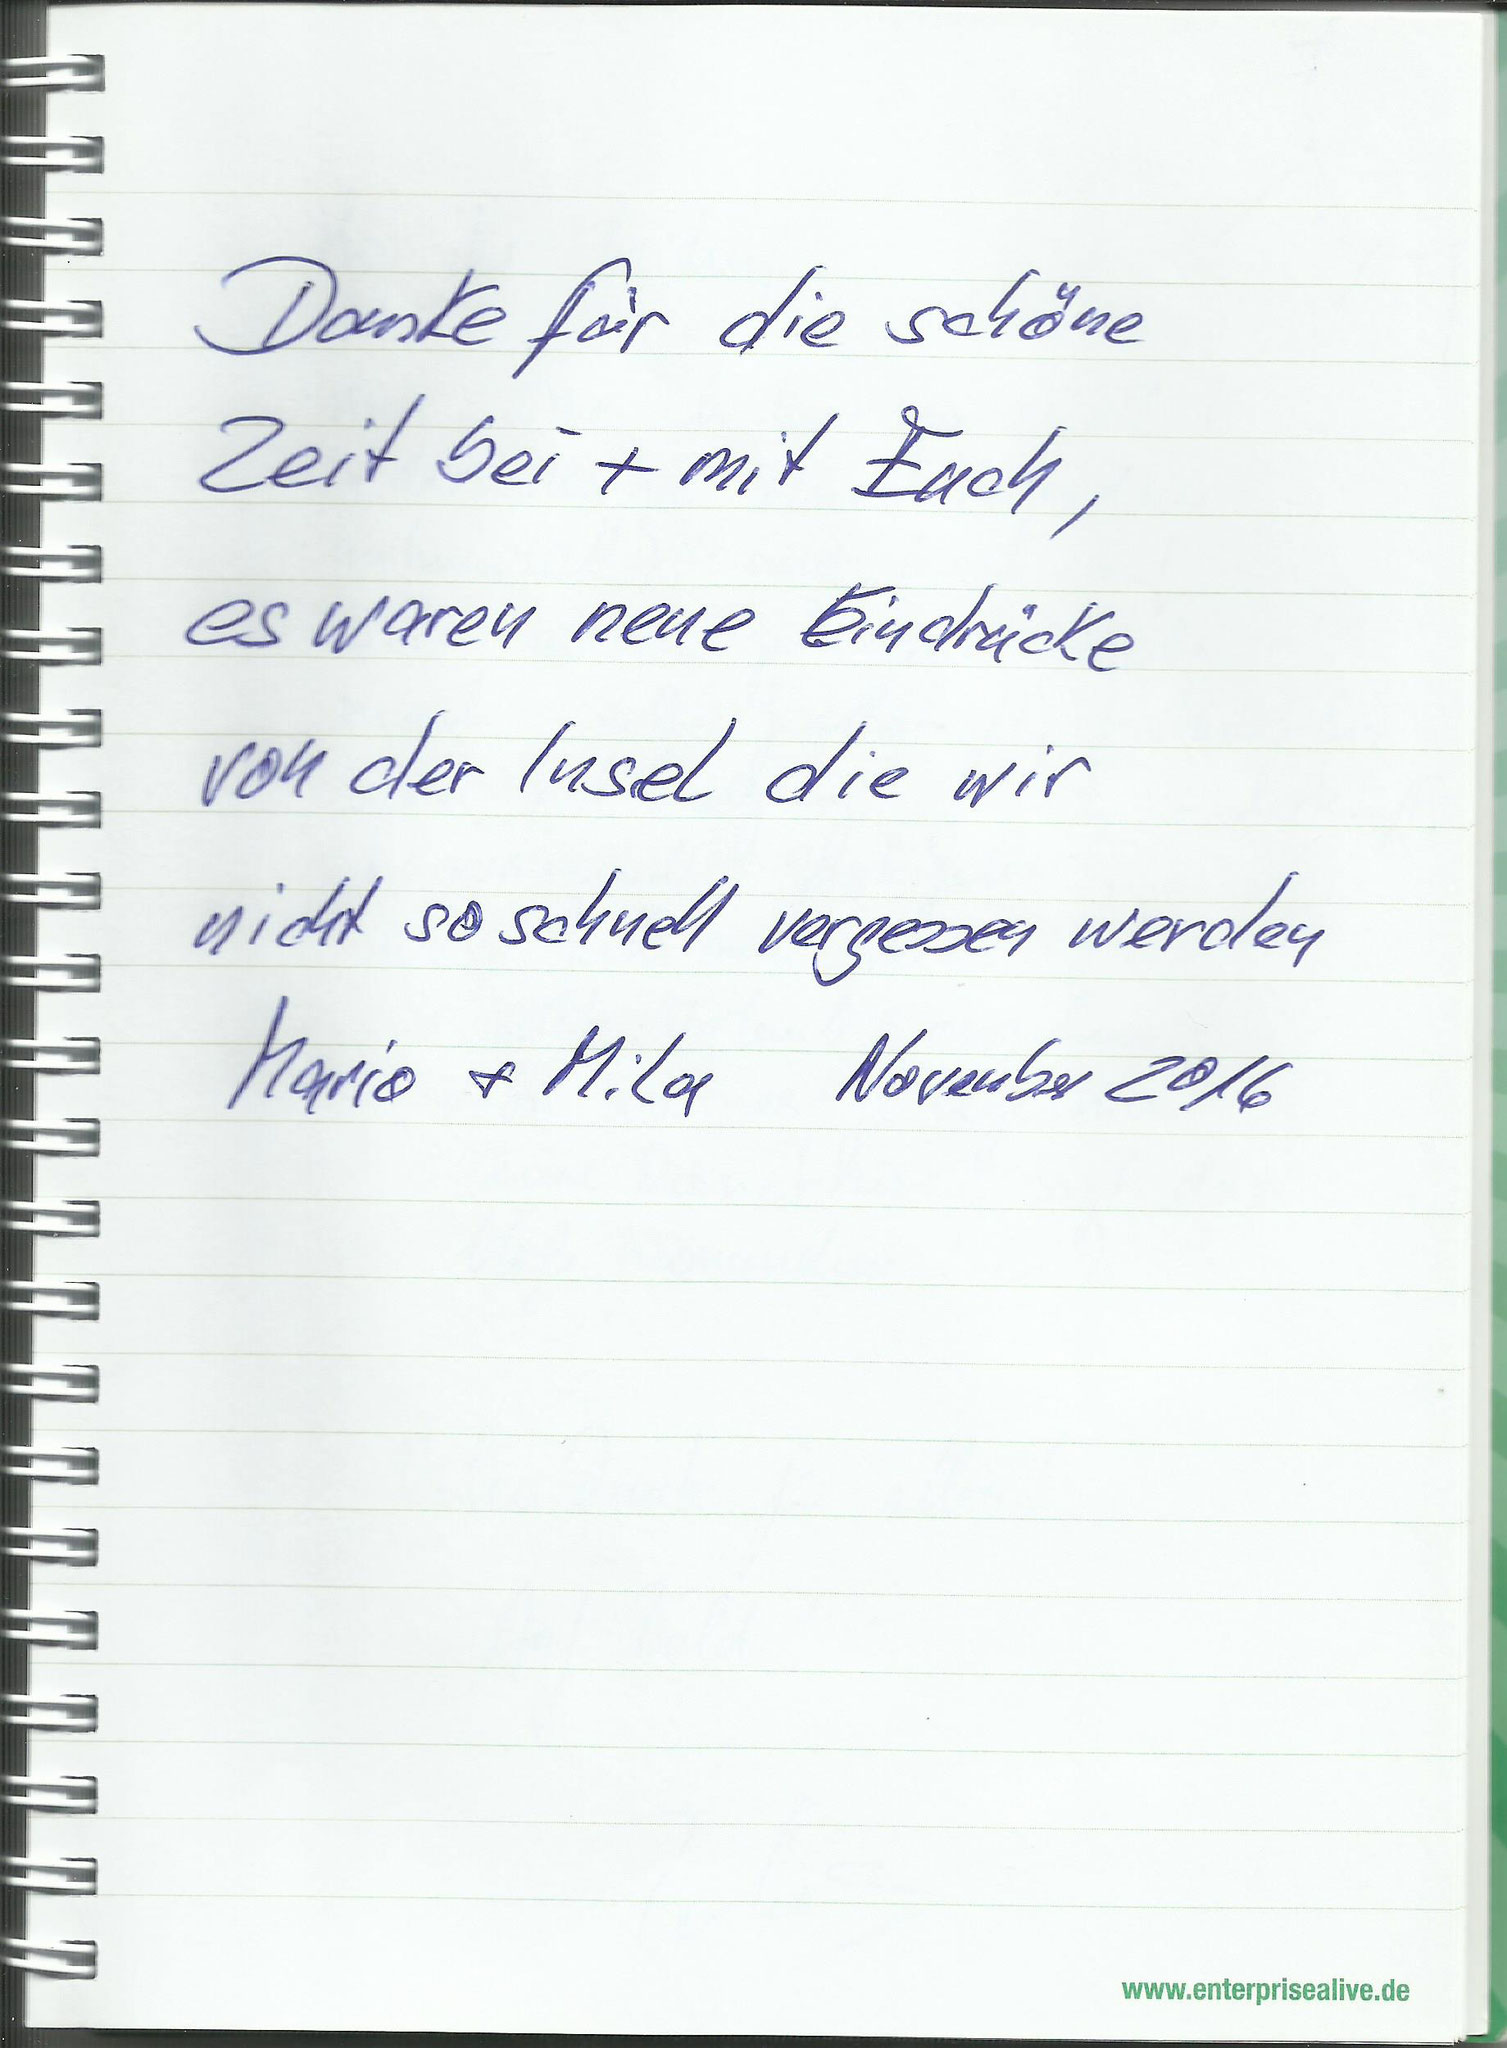 Danke für die schöne
Zeit bei + mit Euch,
es waren neue Eindrücke
von der Insel die wir
nicht so schnell vergessen werden
Mario + Mila November 2016
www.enterprisealive.de